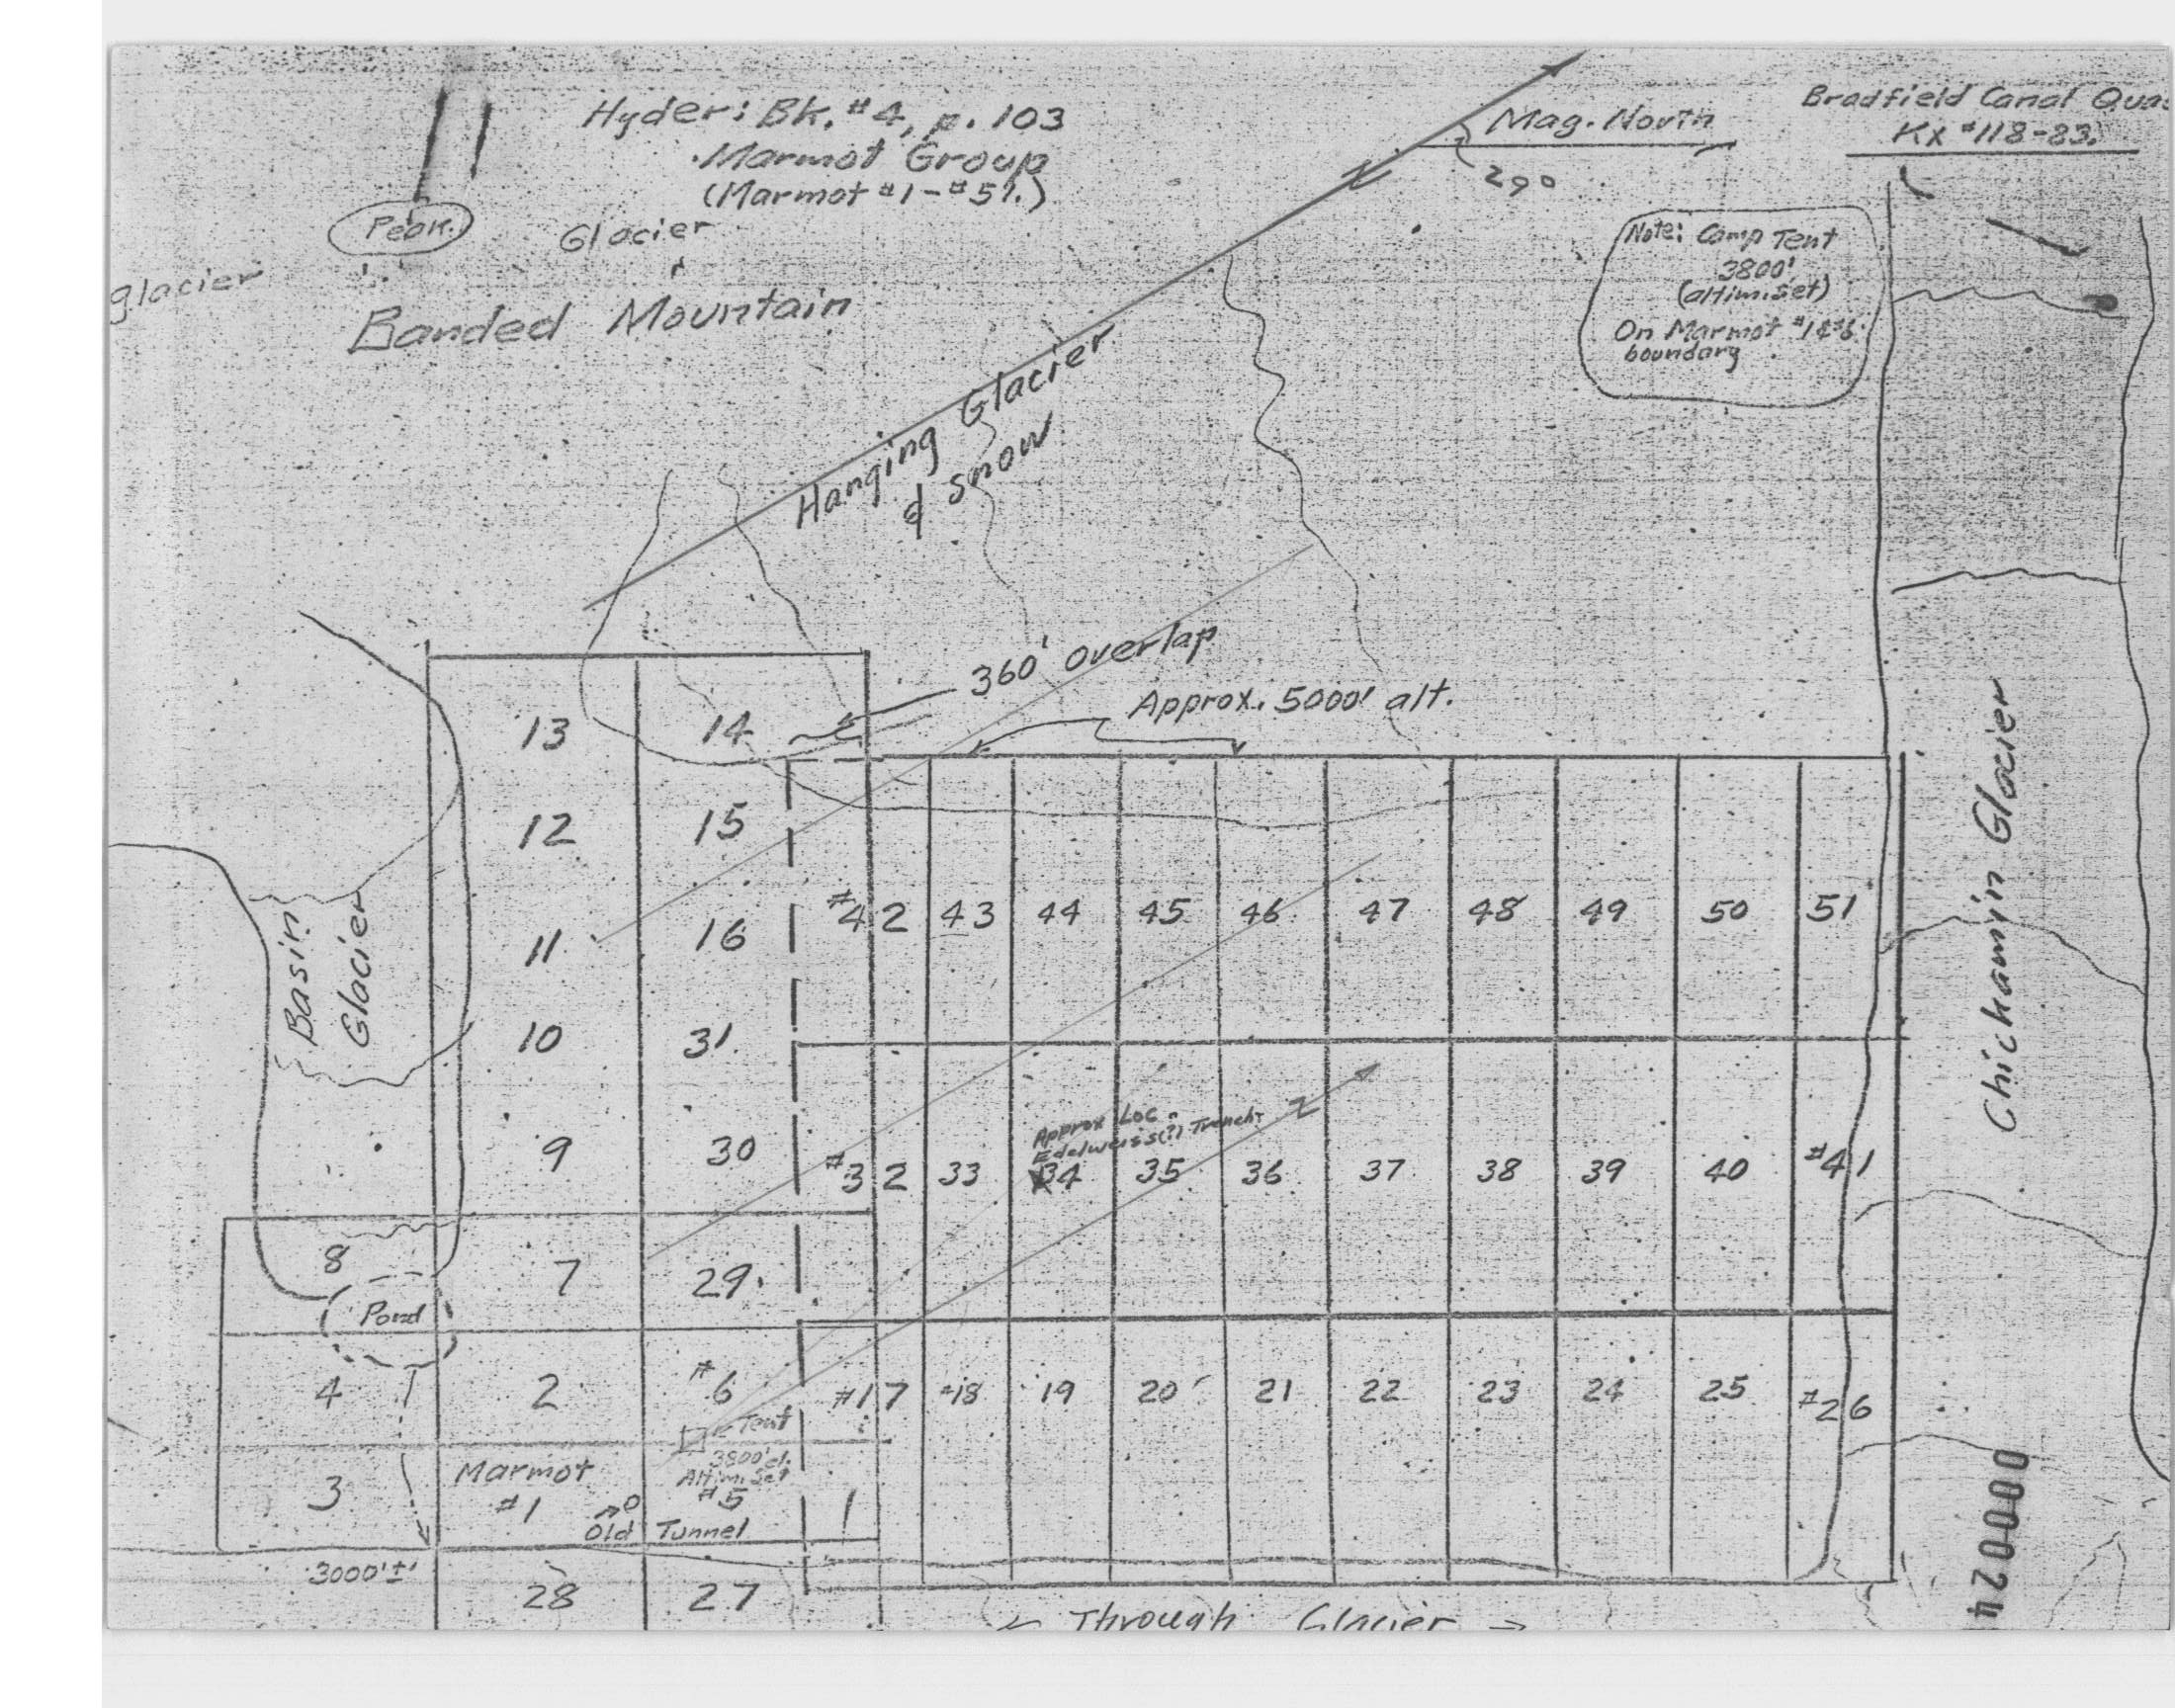 Hyder: Bk. #4, p. 103
Marmot Group
(Marmot #1 - #51.)
Mag. North
29°
Bradfield Canal Qua
Kx #118-83.
Peak.
Glacier
glacier
Banded Mountain
Note: Camp Tent
3800'
(altim. set)
On Marmot #1&#6
boundary
Hanging Glacier
& snow
360' overlap
Approx. 5000' alt.
13 14
12 15
11 16
10 31
9 30
8 7 29
Pond
4 2 #6
Tent
3800' el.
Altim. Set
3 Marmot #1 #5
Old Tunnel
3000'±
28 27
Basin
Glacier
#42 43 44 45 46 47 48 49 50 51
Approx Loc.
Edelweiss(?) Trench
#32 33 34 35 36 37 38 39 40 #41
#17 #18 19 20 21 22 23 24 25 #26
Chickamin Glacier
000024
← Through Glacier →